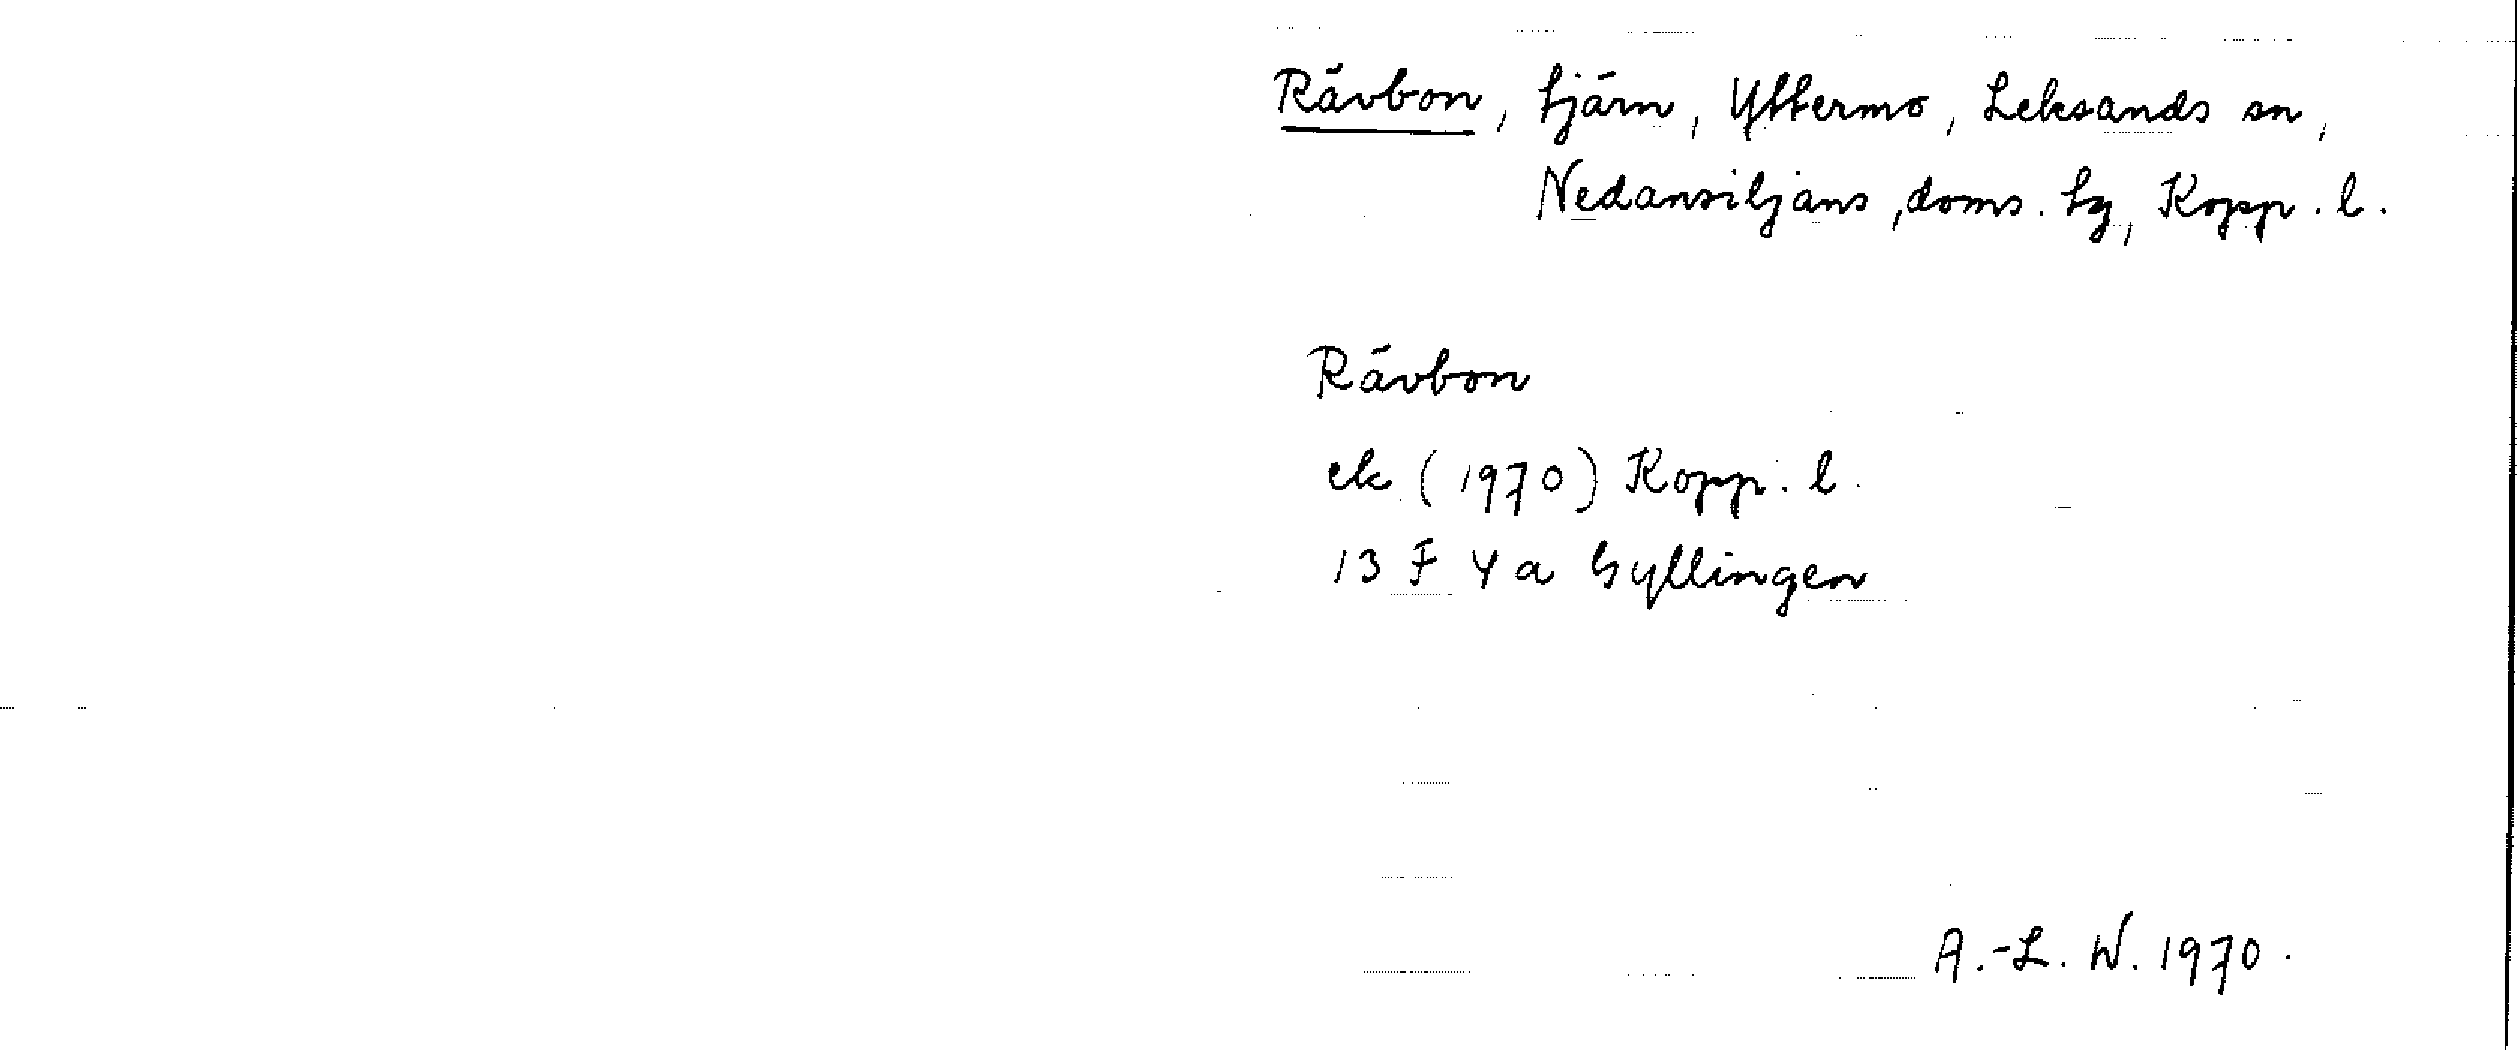 Rävbon, tjärn, Yttermo, Leksands sn,
Nedansiljans, doms. tg, Kopp. l.
Rävbon
ek (1970) Kopp. l.
13 F 4 a Gyllingen
A.-L. W. 1970.